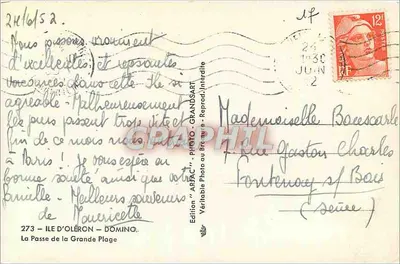 24/6/52.
17
12F
POSTES
24
1930
JUIN
2
Nous passons vraiment
d'excellentes et reposantes
vacances dans cette Ile si
agréable. Malheureusement
les jours passent trop vite et
fin de ce mois nous
à Paris! Je vous espère en
bonne santé ainsi que votre
famille - Meilleurs souvenirs
de Mauricette
Mademoiselle
7 Rue Gaston Charles
Fontenay s/ Bois
(Seine)
CPARAMA
GRAPHIL
273 - ILE D'OLÉRON - DOMINO.
La Passe de la Grande Plage
Edition "ARJAC" - PHOTO - GRANDSART
Véritable Photo au Bromure - Reprod. Interdite